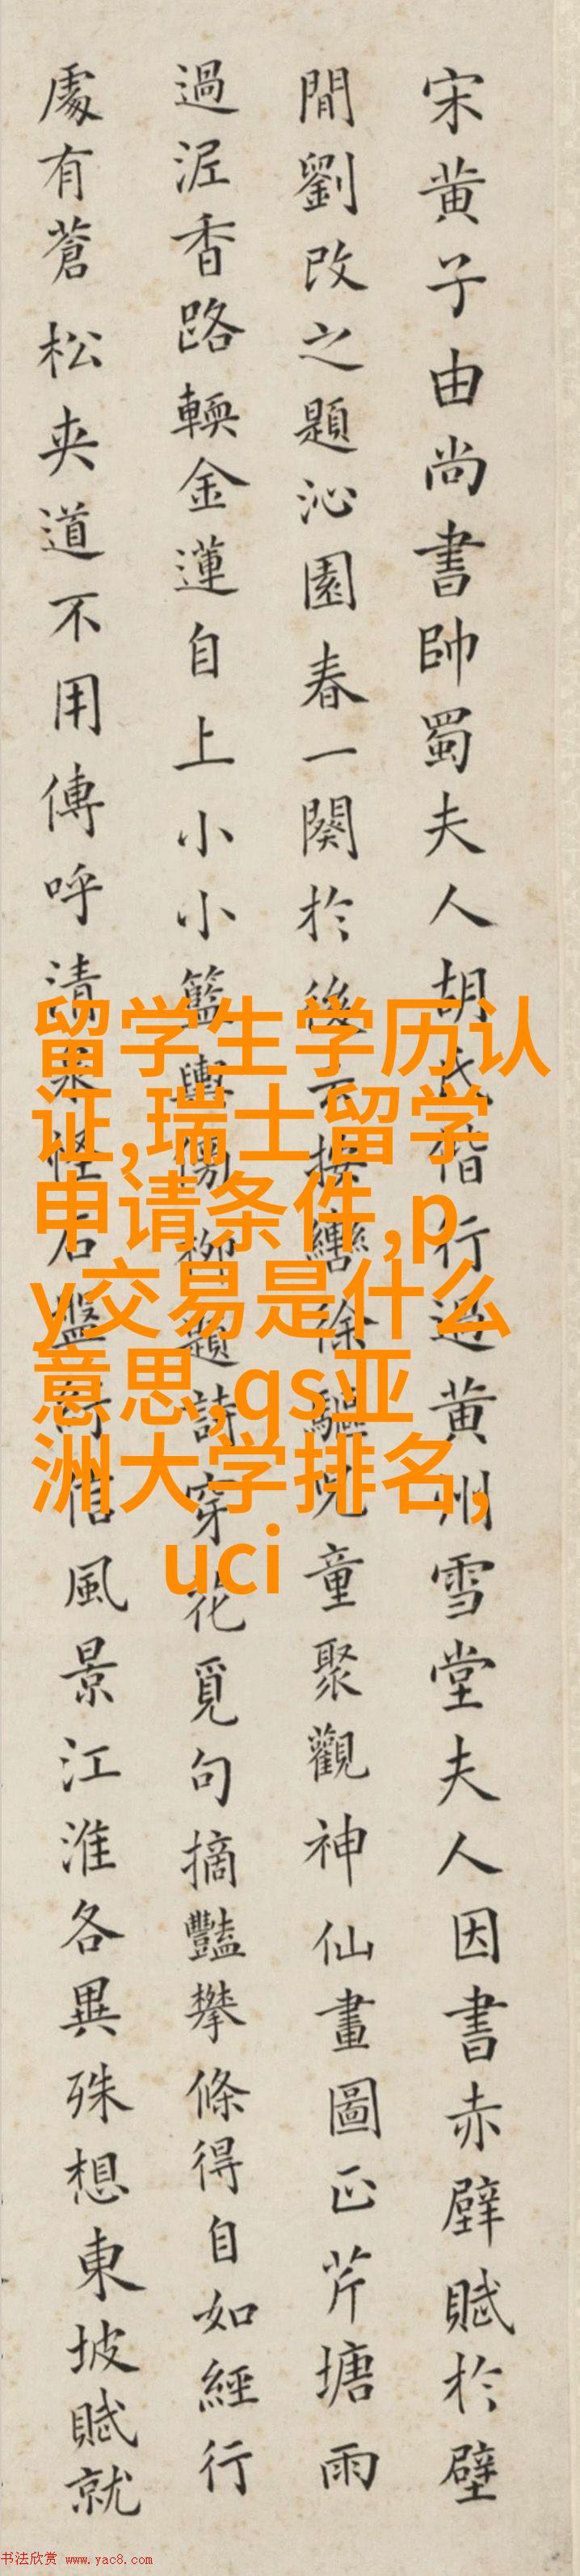 宋黄子由尚書帥蜀夫人胡氏偕行過黄州雪堂夫人因書赤壁賦於壁
間劉改之題沁園春一闋於後云按轡徐驅兒童聚觀神仙畫圖正芹塘雨
過泥香路輭金蓮自上小小籃輿傍柳題詩穿花覓句摘豔攀條得自如經行
處有蒼松夾道不用傳呼清泉怪石盤紆信風景江淮各異殊想東坡賦就
留学生学历认
证,瑞士留学
申请条件,p
y交易是什么
意思,qs亚
洲大学排名,
uci
书法欣赏 www.yac8.com